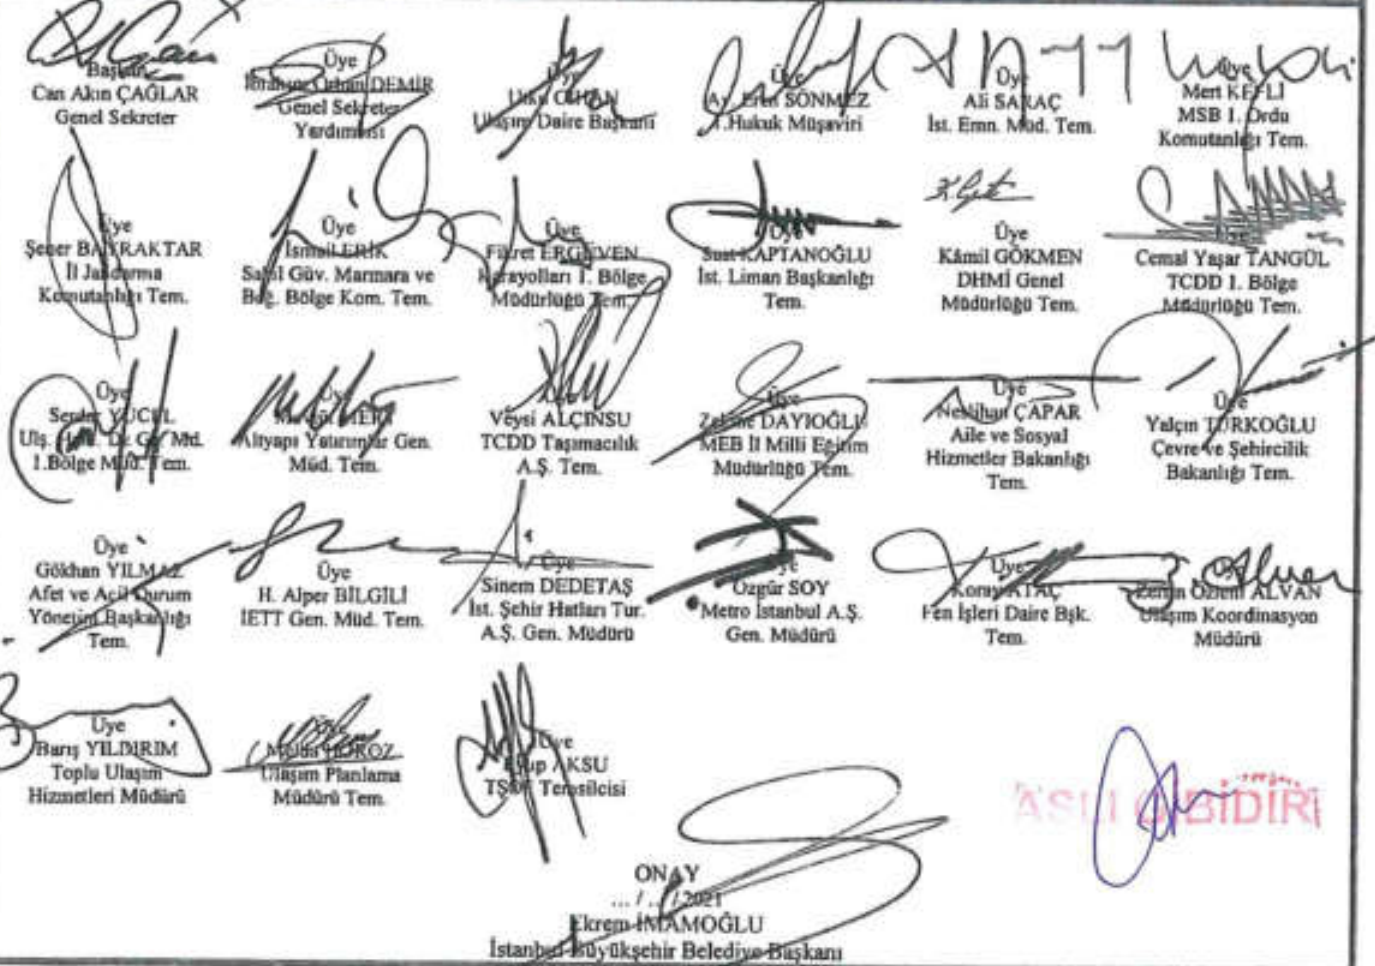 Başkan
Can Akın ÇAĞLAR
Genel Sekreter
Üye
Orhan DEMİR
Genel Sekreter
Yardımcısı
Üye
Utku CİHAN
Ulaşım Daire Başkanı
Üye
Av. Eren SÖNMEZ
1.Hukuk Müşaviri
Üye
Ali SARAÇ
İst. Emn. Müd. Tem.
Üye
Mert KEFLİ
MSB 1. Ordu
Komutanlığı Tem.
Üye
Şener BAYRAKTAR
İl Jandarma
Komutanlığı Tem.
Üye
İsmail ERİK
Sahil Güv. Marmara ve
Boğ. Bölge Kom. Tem.
Üye
Fikret ERGÜVEN
Karayolları 1. Bölge
Müdürlüğü Tem.
Üye
Suat KAPTANOĞLU
İst. Liman Başkanlığı
Tem.
Üye
Kâmil GÖKMEN
DHMİ Genel
Müdürlüğü Tem.
Cemal Yaşar TANGÜL
TCDD 1. Bölge
Müdürlüğü Tem.
Üye
Serdar YÜCEL
Ulş.
1.Bölge Müd. Tem.
Üye
Altyapı Yatırımlar Gen.
Müd. Tem.
Üye
Veysi ALÇINSU
TCDD Taşımacılık
A.Ş. Tem.
Üye
DAYIOĞLU
MEB İl Milli Eğitim
Müdürlüğü Tem.
Üye
Neslihan ÇAPAR
Aile ve Sosyal
Hizmetler Bakanlığı
Tem.
Üye
Yalçın TÜRKOĞLU
Çevre ve Şehircilik
Bakanlığı Tem.
Üye
Gökhan YILMAZ
Afet ve Acil Durum
Yönetim Başkanlığı
Tem.
Üye
H. Alper BİLGİLİ
İETT Gen. Müd. Tem.
Üye
Sinem DEDETAŞ
İst. Şehir Hatları Tur.
A.Ş. Gen. Müdürü
Üye
Özgür SOY
Metro İstanbul A.Ş.
Gen. Müdürü
Üye
Koray ATAÇ
Fen İşleri Daire Bşk.
Tem.
Özlem ALVAN
Ulaşım Koordinasyon
Müdürü
Üye
Barış YILDIRIM
Toplu Ulaşım
Hizmetleri Müdürü
HOROZ
Ulaşım Planlama
Müdürü Tem.
Üye
Eyup AKSU
Temsilcisi
ASLI GİBİDİR
ONAY
... / ... /2021
Ekrem İMAMOĞLU
İstanbul Büyükşehir Belediye Başkanı